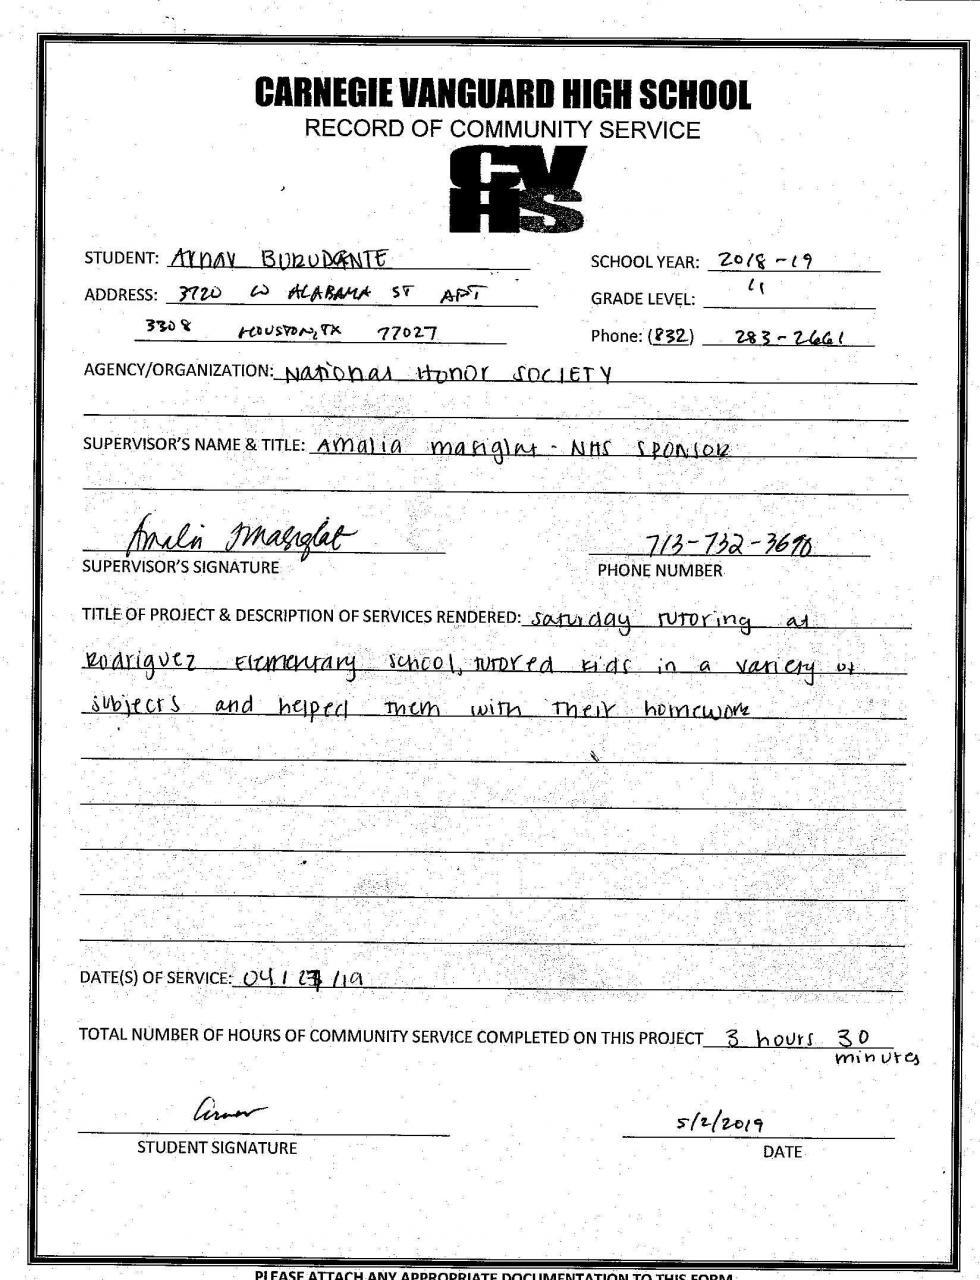 CARNEGIE VANGUARD HIGH SCHOOL
RECORD OF COMMUNITY SERVICE
CV
HS
STUDENT: Arnav BURUDGNTE
SCHOOL YEAR: 2018-19
ADDRESS: 3720 W ALABAMA ST APT
GRADE LEVEL: 11
3308 HOUSTON, TX 77027
Phone: (832) 283-2661
AGENCY/ORGANIZATION: National Honor SOCIETY
SUPERVISOR'S NAME & TITLE: Amalia Masiglat - NHS SPONSOR
Amalia Masiglat
713-732-3690
SUPERVISOR'S SIGNATURE
PHONE NUMBER
TITLE OF PROJECT & DESCRIPTION OF SERVICES RENDERED: Saturday tutoring at
Rodriguez Elementary School, tutored kids in a variety of
subjects and helped them with their homework
DATE(S) OF SERVICE: 04/27/19
TOTAL NUMBER OF HOURS OF COMMUNITY SERVICE COMPLETED ON THIS PROJECT 3 hours 30
minutes
Arnav
5/2/2019
STUDENT SIGNATURE
DATE
PLEASE ATTACH ANY APPROPRIATE DOCUMENTATION TO THIS FORM